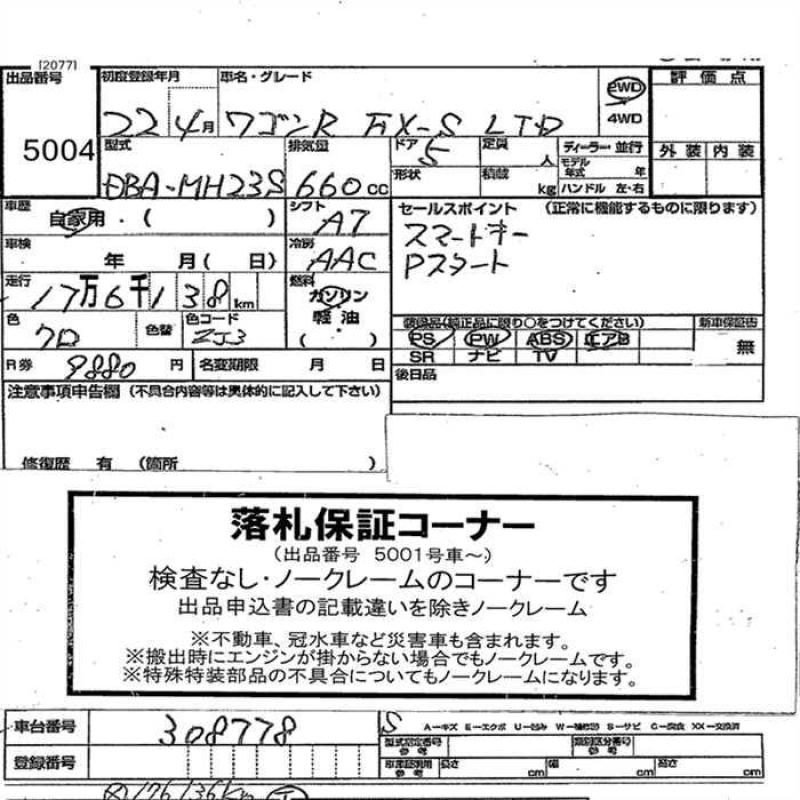 [2077]
出品番号 初度登録年月 車名・グレード 2WD 評価点
5004 22 4月 ワゴンR FX-S LTD 4WD
型式 排気量 ドア 5 定員 人 ディーラー・並行 外装 内装
モデル年式 年
DBA-MH23S 660cc 形状 積載 kg ハンドル 左・右
車歴 自家用・( ) シフト A7 セールスポイント (正常に機能するものに限ります)
車検 年 月( 日) 冷房 AAC スマートキー
Pスタート
走行 17万6千138km 燃料 ガソリン
軽油
( )
色 クロ 色替 色コード ZJ3 装備品(純正品に限り○をつけてください) 新車保証書
PS PW ABS エアB 無
SR ナビ TV
R券 9880円 名変期限 月 日 後日品
注意事項申告欄 (不具合内容等は具体的に記入して下さい)
修復歴 有 (箇所 )
落札保証コーナー
(出品番号 5001号車~)
検査なし・ノークレームのコーナーです
出品申込書の記載違いを除きノークレーム
※不動車、冠水車など災害車も含まれます。
※搬出時にエンジンが掛からない場合でもノークレームです。
※特殊特装部品の不具合についてもノークレームになります。
車台番号 308778 S A-キズ E-エクボ U-凹み W-補修跡 S-サビ C-腐食 XX-交換済
型式指定番号 参考 類別区分番号 参考
登録番号 長さ cm 幅 cm 高さ cm
176136km